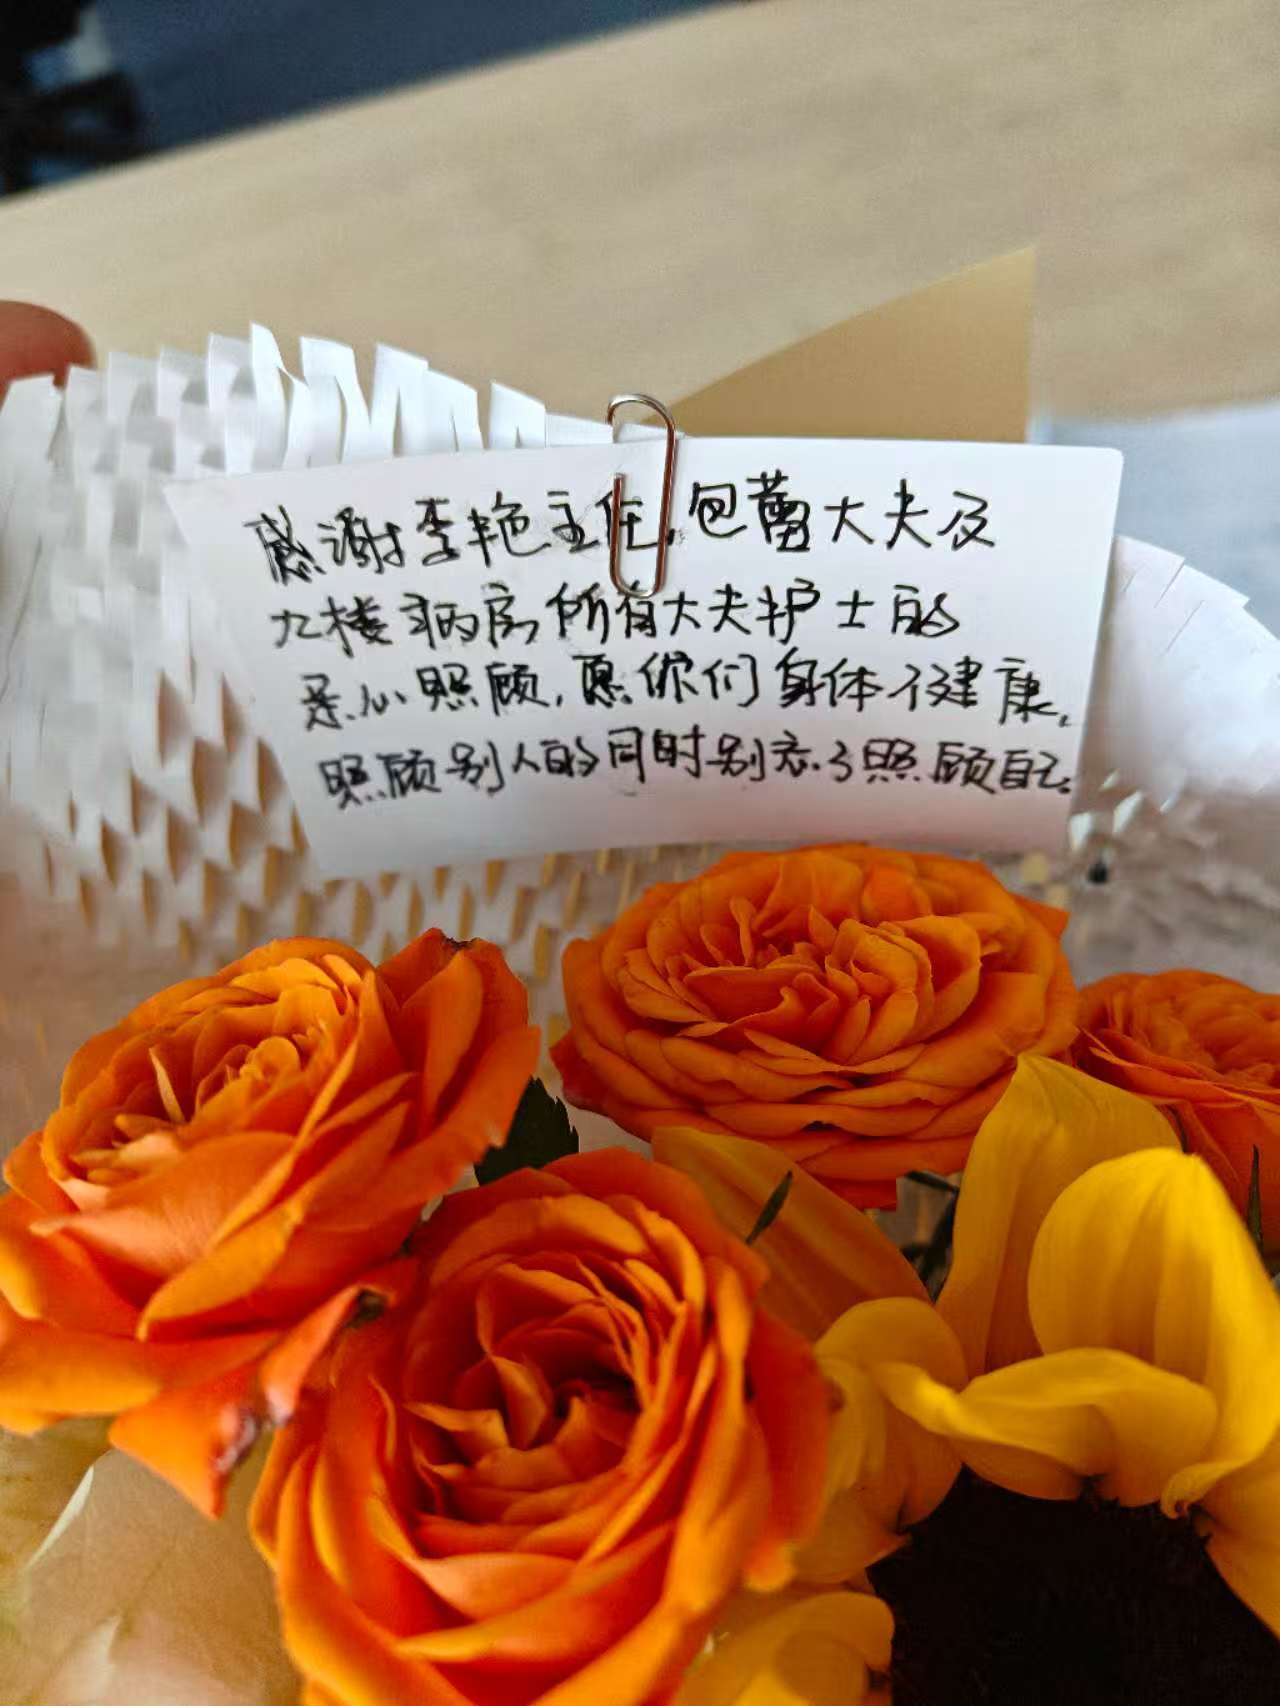 感谢李艳主任、包蕾大夫及
九楼病房所有大夫护士的
亲心照顾,愿你们身体健康,
照顾别人的同时别忘了照顾自己。